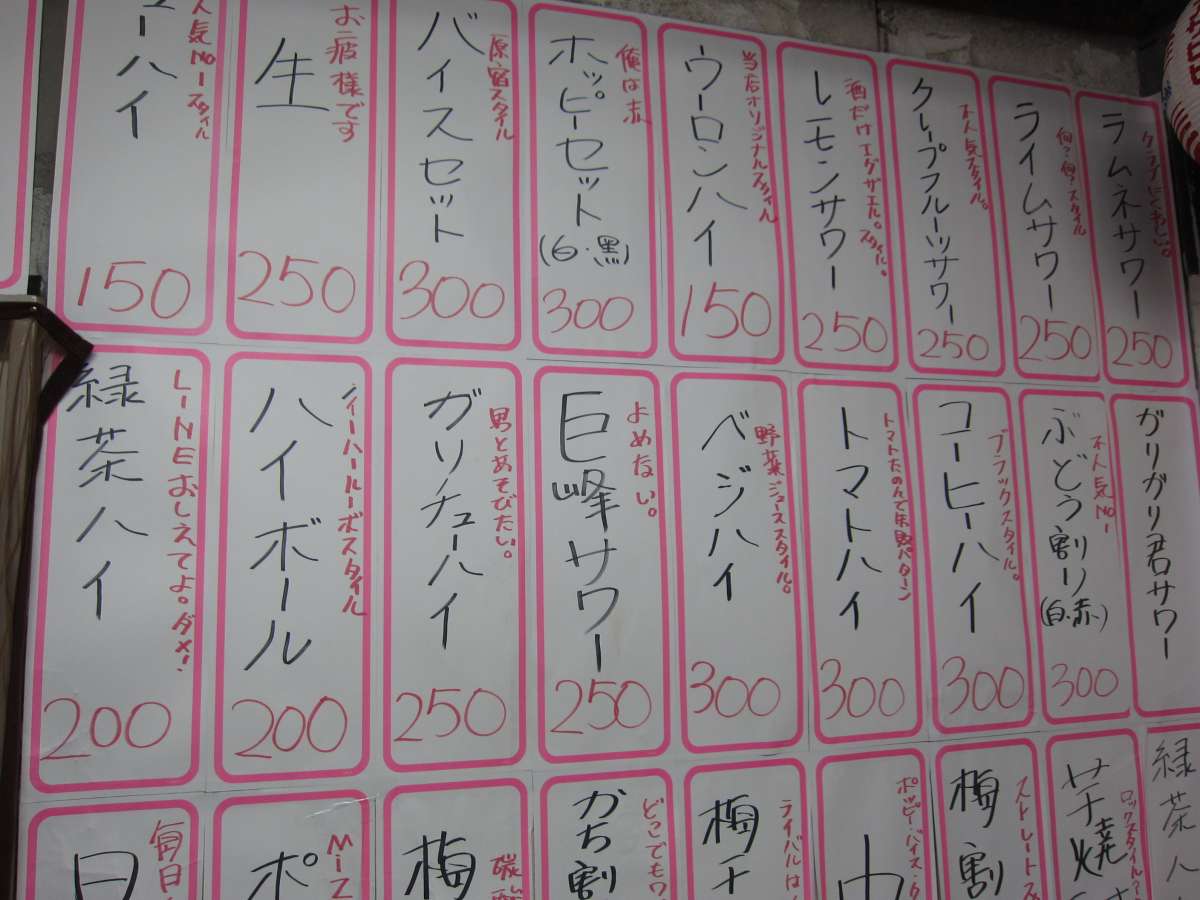 人気No1スタイル
ューハイ
150
お疲様です
生
250
原宿スタイル
バイスセット
300
俺は赤
ホッピーセット
(白・黒)
300
当店オリジナルスタイル
ウーロンハイ
150
酒だけエグザエル。スタイル。
レモンサワー
250
不人気スタイル。
クレープフルーツサワー
250
何?何?スタイル
ライムサワー
250
ラムネサワー
250
LINEおしえてよ。ダメ!
緑茶ハイ
200
イーハールーボスタイル
ハイボール
200
男とあそびたい。
ガリチューハイ
250
よめない。
巨峰サワー
250
野菜ジューススタイル。
ベジハイ
300
トマトたのんで失敗パターン
トマトハイ
300
ブラックスタイル。
コーヒーハイ
300
不人気No1
ぶどう割り
(白・赤)
300
ガリガリ君サワー
毎日
ポ
梅
どこでもワ
かち割
ライバルは
梅チ
ホッピー・バイス・タ
ストレートス
梅割
ロックスタイル?
芋焼
緑茶ハ